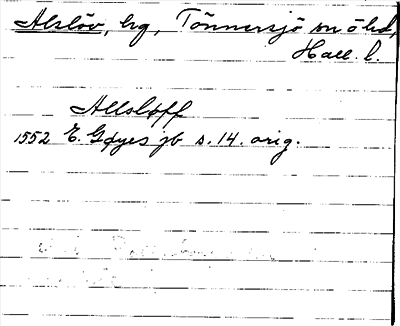 Alslöv, hg, Tönnersjö sn ö hd,
Hall. l.
Allsløff
1552 E. Gøyes jb s. 14. orig.